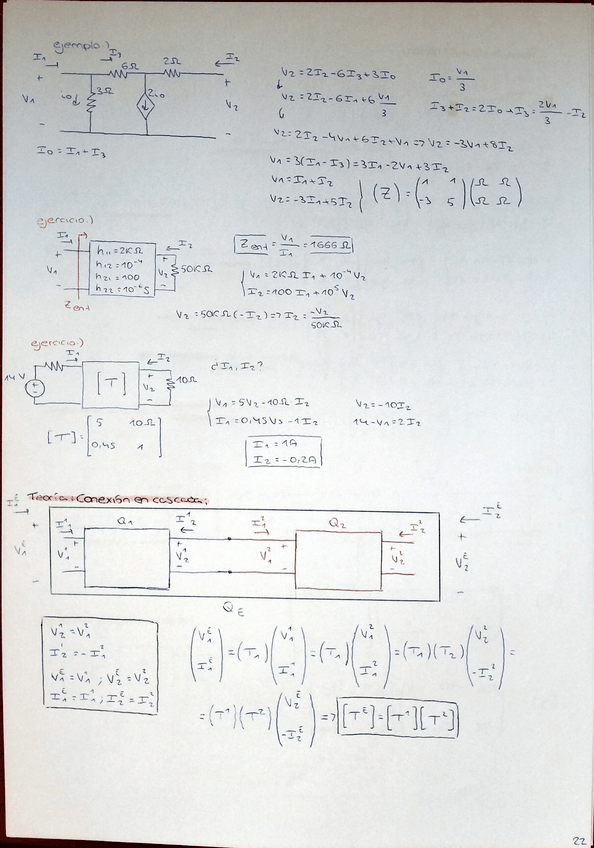 ejemplo:)
I₁ I₃ 6Ω 2Ω I₂
+ i₀ 3Ω 2i₀ +
V₁ V₂
- -
I₀ = I₁ + I₃
V₂ = 2I₂ - 6I₃ + 3I₀ I₀ = V₁/3
V₂ = 2I₂ - 6I₁ + 6 V₁/3 I₃ + I₂ = 2I₀ → I₃ = 2V₁/3 - I₂
V₂ = 2I₂ - 4V₁ + 6I₂ + V₁ ⇒ V₂ = -3V₁ + 8I₂
V₁ = 3(I₁ - I₃) = 3I₁ - 2V₁ + 3I₂
V₁ = I₁ + I₂
V₂ = -3I₁ + 5I₂ } (Z) = (1 1; -3 5) (Ω Ω; Ω Ω)
ejercicio:)
I₁ I₂
+ h₁₁ = 2KΩ +
V₁ h₁₂ = 10⁻⁴ V₂ 50KΩ
h₂₁ = 100
- h₂₂ = 10⁻⁵ S -
Zent
Zent = V₁/I₁ = 1666 Ω
V₁ = 2KΩ I₁ + 10⁻⁴ V₂
I₂ = 100 I₁ + 10⁵ V₂
V₂ = 50KΩ (-I₂) ⇒ I₂ = -V₂/50KΩ
ejercicio:)
14 V I₁ [T] I₂ + V₂ - 10Ω
[T] = [5 10Ω; 0,45 1]
¿I₁, I₂?
V₁ = 5V₂ - 10Ω I₂ V₂ = -10I₂
I₁ = 0,45V₂ - 1I₂ 14 - V₁ = 2I₁
I₁ = 1A
I₂ = -0,2A
Teoría: Conexión en cascada:
I₁ᴱ Q₁ Q₂ I₂ᴱ
+ I₁¹ I₂¹ I₁² I₂² +
V₁ᴱ V₁¹ V₂¹ V₁² V₂² V₂ᴱ
- -
Qᴱ
V₂¹ = V₁²
I₂¹ = -I₁²
V₁ᴱ = V₁¹ ; V₂ᴱ = V₂²
I₁ᴱ = I₁¹ ; I₂ᴱ = I₂²
(V₁ᴱ; I₁ᴱ) = (T₁)(V₁¹; I₁¹) = (T₁)(V₁²; I₁²) = (T₁)(T₂)(V₂²; -I₂²) =
= (T¹)(T²)(V₂ᴱ; -I₂ᴱ) ⇒ [Tᴱ] = [T¹][T²]
22